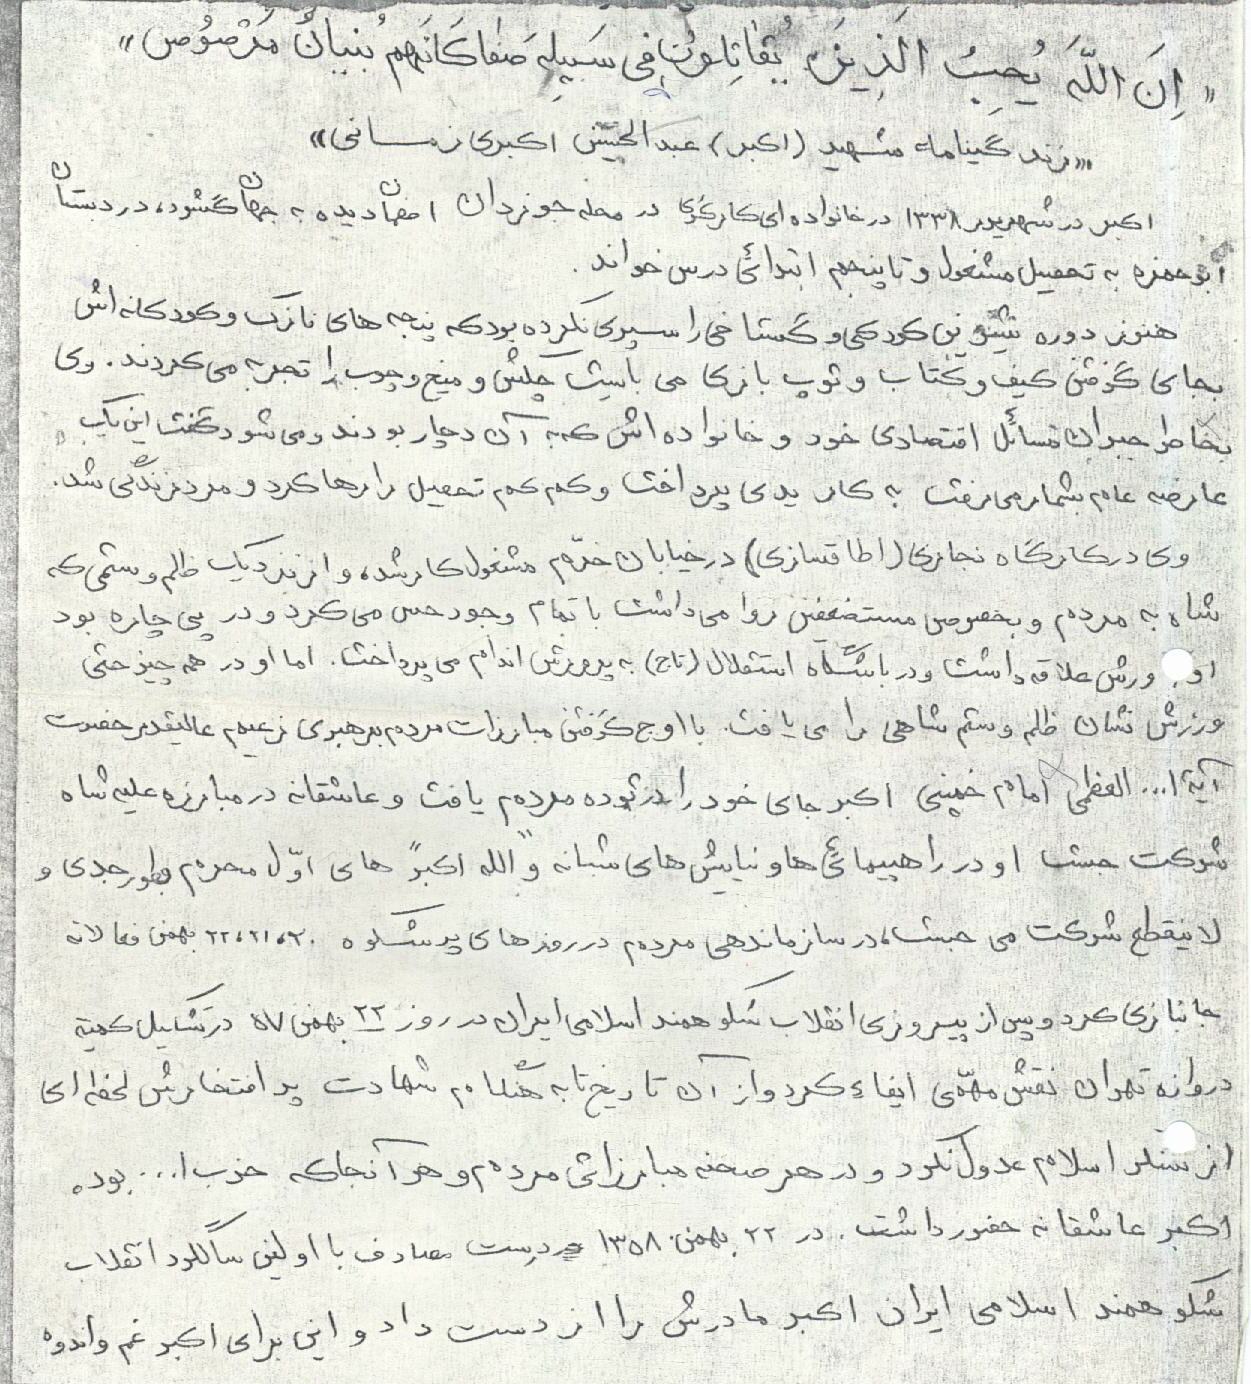 « اِنَّ اللّهَ یُحِبُّ الَّذِینَ یُقاتِلُونَ فِی سَبِیلِهِ صَفاً کَاَنَّهُم بُنیانٌ مَرْصُوصٌ »
«زندگینامه شهید (اکبر) عبدالحسین اکبری زمانی»
اکبر در شهریور ۱۳۳۸ در خانواده ای کارگری در محله جوزدان اصفهان دیده به جهان گشود، در دبستان
ابوحمزه به تحصیل مشغول و تا پنجم ابتدائی درس خواند .
هنوز دوره کودکی و گستاخی را سپری نکرده بود که پنجه های نازک و کودکانه اش
بجای گرفتن کیف و کتاب و توپ بازی می بایست چکش و میخ و چوب را تجربه می کردند . وی
بخاطر جبران مسائل اقتصادی خود و خانواده اش که به آن دچار بودند و می شود گفت این یک
عارضه عام بشمار می رفت به کار یدی پرداخت و کم کم تحصیل را رها کرد و مرد زندگی شد .
وی در کارگاه نجاری (اطاقسازی) در خیابان خرّم مشغول کار شد، و از نزدیک ظلم و ستمی که
شاه به مردم و بخصوص مستضعفین روا می داشت با تمام وجود حس می کرد و در پی چاره بود
او ورزش علاقه داشت و در باشگاه استقلال (تاج) به پرورش اندام می پرداخت . اما او در همه چیز حتی
ورزش نشان ظلم و ستم شاهی را می یافت . با اوج گرفتن مبارزات مردم برهبری زعیم عالیقدر حضرت
آیة ا... العظمی امام خمینی اکبر جای خود را در توده مردم یافت و عاشقانه در مبارزه علیه شاه
شرکت جست او در راهپیمائی ها و نیایش های شبانه و "الله اکبر" های اوّل محرم بطور جدی و
لاینقطع شرکت می جست، در سازماندهی مردم در روزهای پر شکوه ۲۰، ۲۱، ۲۲ بهمن فعالانه
جانبازی کرد و پس از پیروزی انقلاب شکوهمند اسلامی ایران در روز ۲۲ بهمن ۵۷ در تشکیل کمیته
دروازه تهران نقش مهّمی ایفاء کرد و از آن تاریخ تا به هنگام شهادت پر افتخارش لحظه ای
از سنگر اسلام عدول نکرد و در هر صحنه مبارزاتی مردم و هر آنجا که حزب ا... بود .
اکبر عاشقانه حضور داشت . در ۲۲ بهمن ۱۳۵۸ درست مصادف با اولین سالگرد انقلاب
شکوهمند اسلامی ایران اکبر مادرش را از دست داد و این برای اکبر غم و اندوه